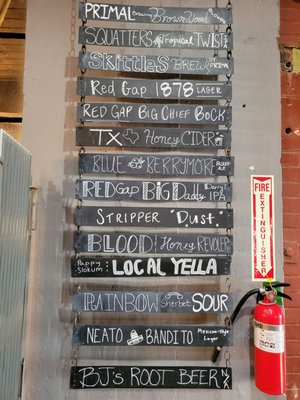 PRIMAL Brewing Brown Wood
SQUATTERS Tropical TWIST
Skittles BREW BY PRIMAL
Red Gap 1878 LAGER
RED GAP BIG CHIEF BOCK
TX Honey CIDER
BLUE KERRYMORE
RED Gap BIG Daddy IPA
STRIPPER "Dust"
BLOOD Honey REVOLVER
Pappy Slokum LOCAL YELLA
RAINBOW Sherbet SOUR
NEATO BANDITO Mexican-Style Lager
BJ's ROOT BEER
FIRE
EXTINGUISHER